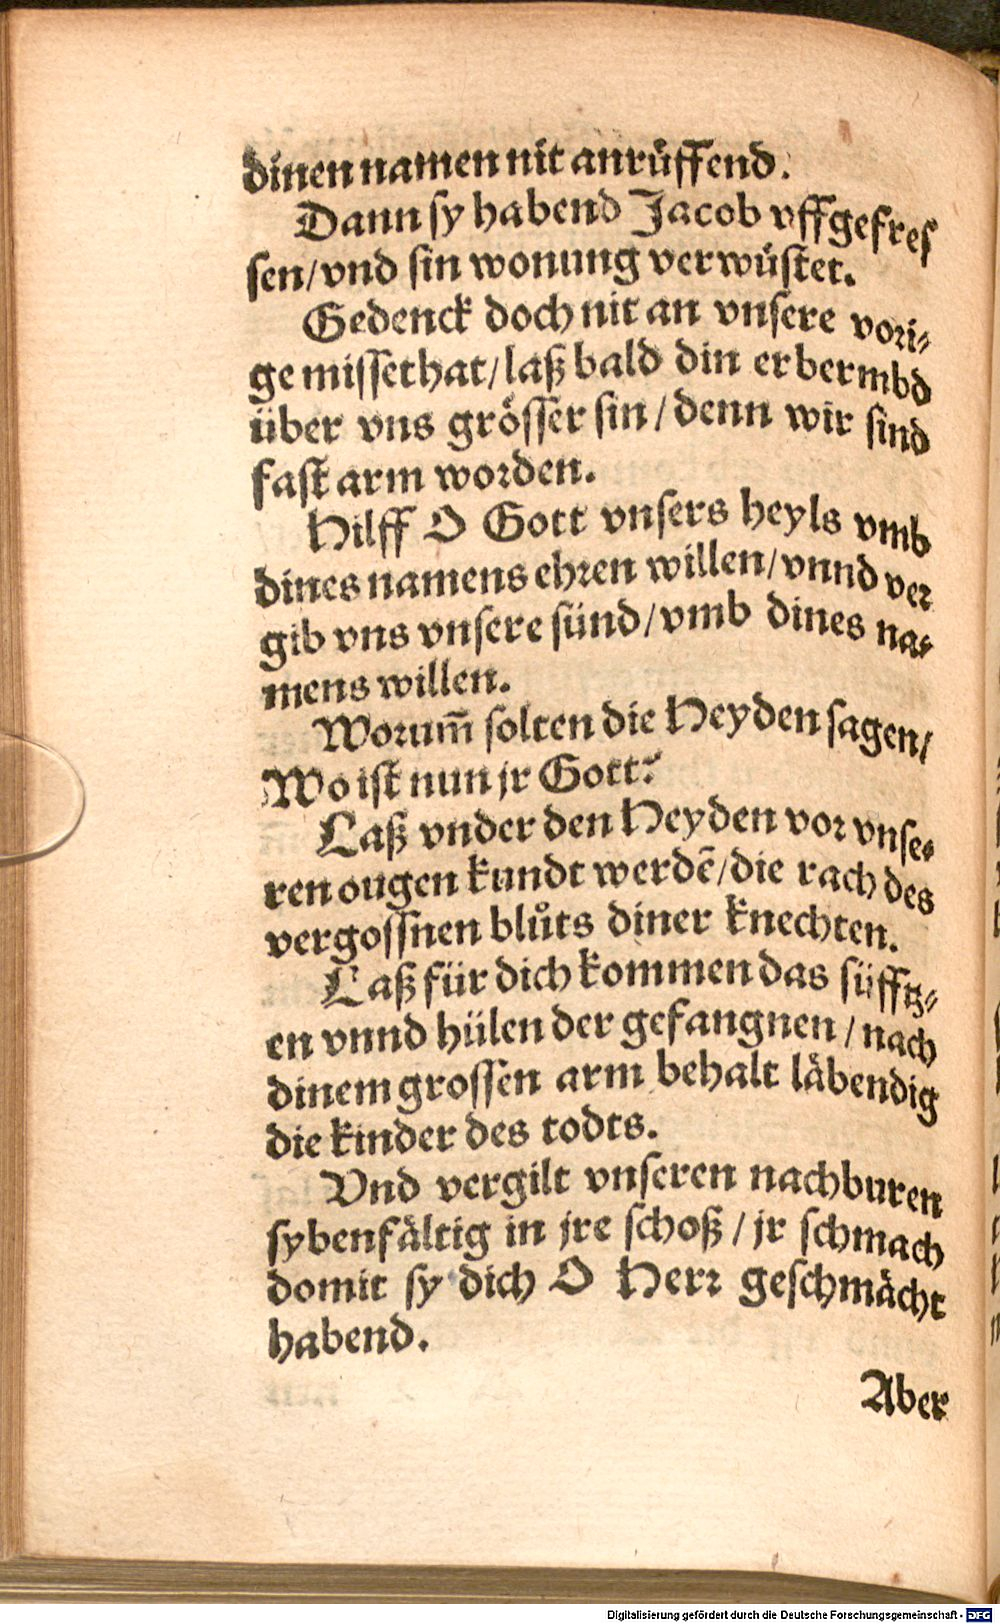 dinen namen nit anrüffend.
Dann sy habend Jacob vffgefres
sen/vnd sin wonung verwüstet.
Gedenck doch nit an vnsere vori⸗
ge missethat/laß bald din erbermbd
über vns grösser sin/denn wir sind
fast arm worden.
Hilff O Gott vnsers heyls vmb
dines namens ehren willen/vnnd ver
gib vns vnsere sünd/vmb dines na⸗
mens willen.
Worum̃ solten die Heyden sagen/
Wo ist nun jr Gott?
Laß vnder den Heyden vor vnse⸗
ren ougen kundt werdē/die rach des
vergossnen blůts diner knechten.
Laß für dich kommen das süfftz⸗
en vnnd hülen der gefangnen/nach
dinem grossen arm behalt läbendig
die kinder des todts.
Vnd vergilt vnseren nachburen
sybenfältig in jre schoß/jr schmach
domit sy dich O Herr geschmächt
habend.
Aber
Digitalisierung gefördert durch die Deutsche Forschungsgemeinschaft - DFG